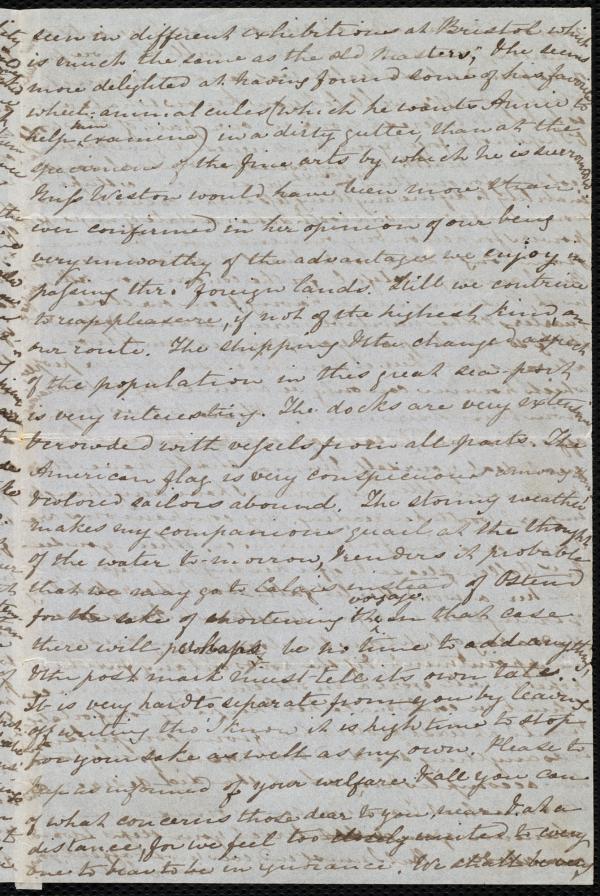 seen in different exhibitions at Bristol which
is much the same as the old Masters," & he seems
more delighted at having found some of his favorite
wheel-animalcules (which he wants Annie to
help him examine) in a dirty gutter, than at the
specimens of the fine arts by which he is surrounded.
Miss Weston would have been more than
ever confirmed in her opinion of our being
very unworthy of the advantages we enjoy in
passing thro' foreign lands. Still we contrive
to reap pleasure, if not of the highest kind, on
our route. The shipping & the changed aspect
of the population in this great sea-port
is very interesting. The docks are very extensive
& crowded with vessels from all parts. The
American flag is very conspicuous among
& colored sailors abound. The stormy weather
makes my companions quail at the thought
of the water to-morrow, & renders it probable
that we may go to Calais instead of Ostend
for the sake of shortening the voyage. In that case
there will perhaps be no time to add anything,
& the post mark must tell its own tale.
It is very hard to separate from you by leaving
off writing tho' I know it is high time to stop
for your sake as well as my own. Please to
keep us informed of your welfare & all you can
of what concerns those dear to you, near & at a
distance, for we feel too closely united to every
one to bear to be in ignorance. We shall be very